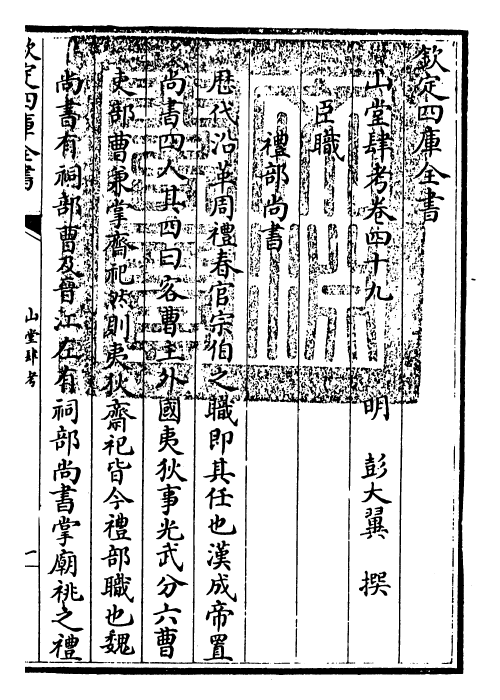 欽定四庫全書
山堂肆考卷四十九　明　彭大翼　撰
臣職
禮部尚書
歴代沿革周禮春官宗伯之職即其任也漢成帝置
尚書四人其四曰客曹主外國夷狄事光武分六曹
吏部曹兼掌齋祀然則夷狄齋祀皆今禮部職也魏
尚書有祠部曹及晉江左有祠部尚書掌廟祧之禮
欽定四庫全書
山堂肆考
一